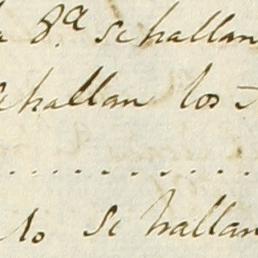 8.ª se hallan
se hallan los
lo se hallan